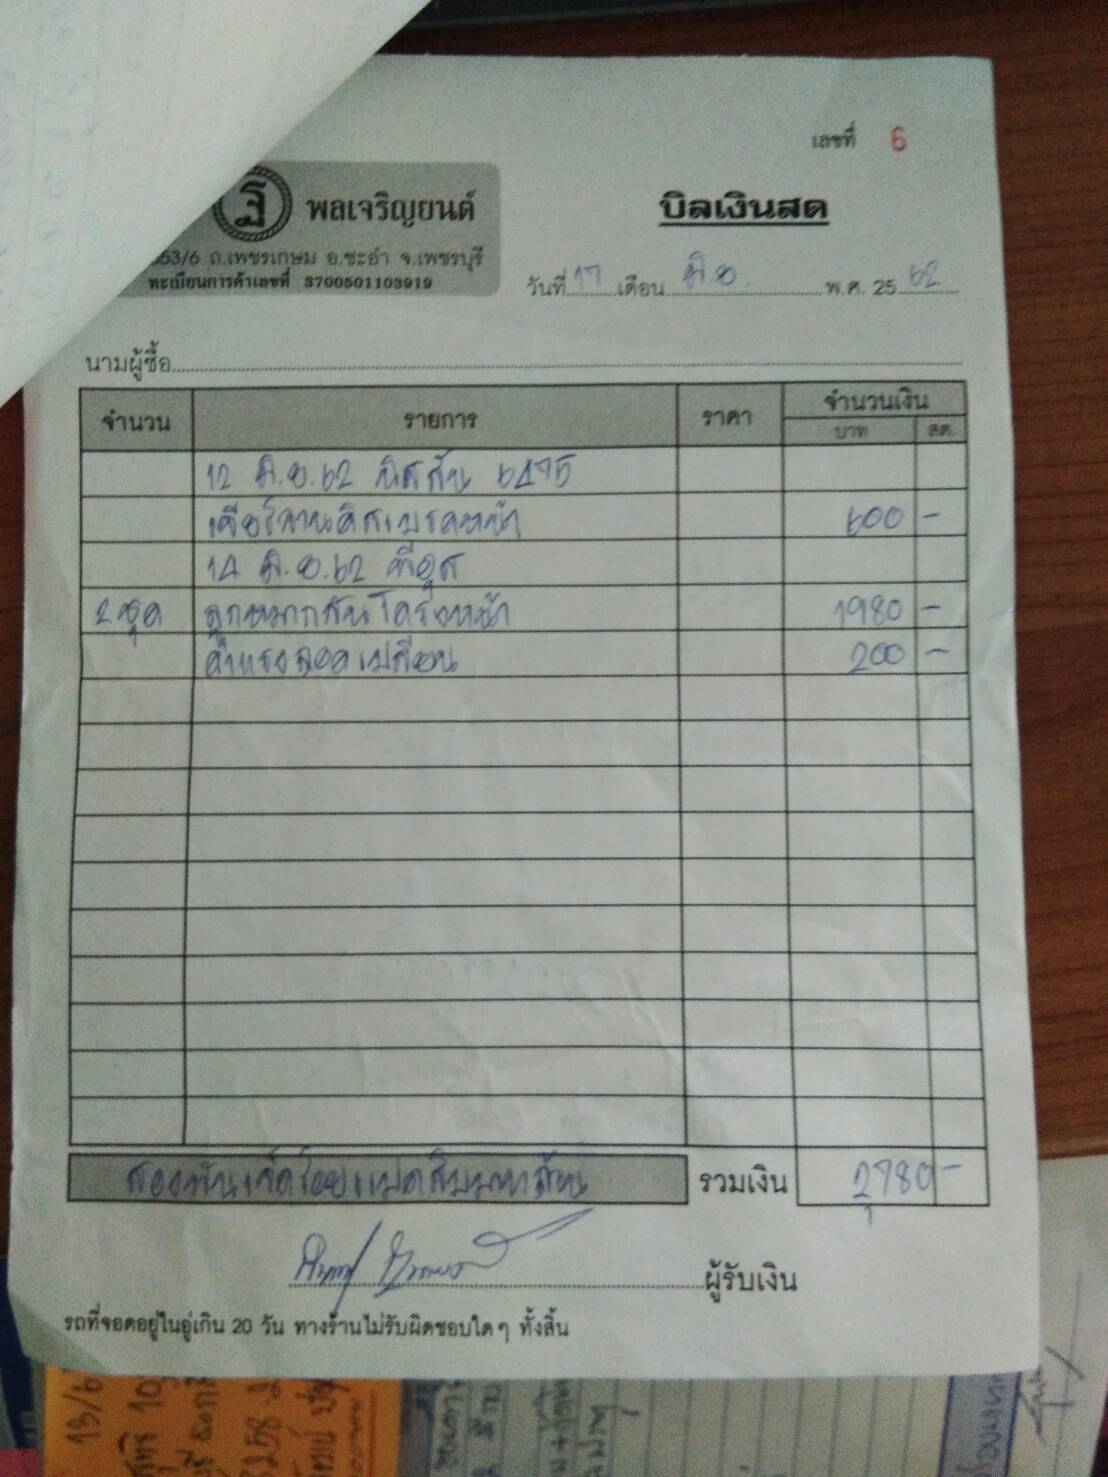 เลขที่ 6
พลเจริญยนต์
บิลเงินสด
553/6 ถ.เพชรเกษม อ.ชะอำ จ.เพชรบุรี
ทะเบียนการค้าเลขที่ 3700501103919
วันที่ 17 เดือน มิ.ย. พ.ศ. 25 62
นามผู้ซื้อ
จำนวน รายการ ราคา จำนวนเงิน
บาท สต.
12 มิ.ย. 62 นิสสัน 6475
เจียร์จานดิสเบรคหน้า 600 -
14 มิ.ย. 62 อีซูซุ
2 ชุด ลูกหมากกันโครงหน้า 1980 -
ค่าแรงถอดเปลี่ยน 200 -
สองพันเจ็ดร้อยแปดสิบบาทถ้วน รวมเงิน 2,780 -
ผู้รับเงิน
รถที่จอดอยู่ในอู่เกิน 20 วัน ทางร้านไม่รับผิดชอบใดๆ ทั้งสิ้น